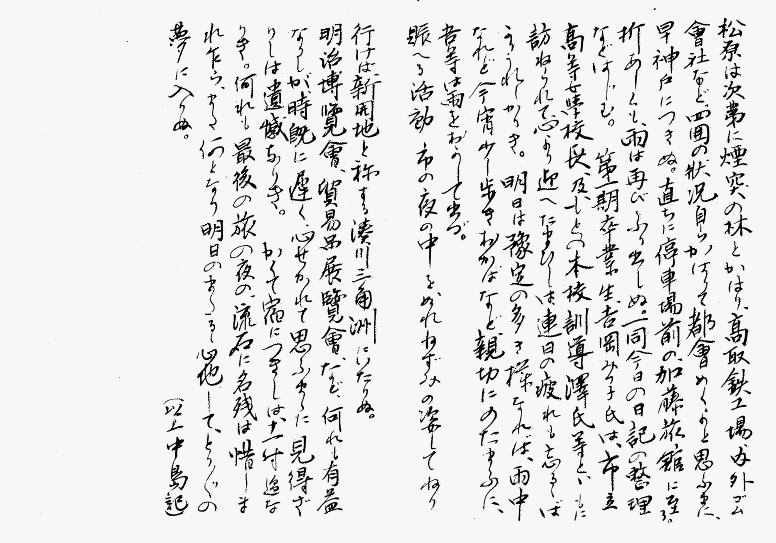 松原は次第に煙突の林とかはり、高取鉄工場内外ゴム
會社など、四囲の状況自らかはりて都會めくよと思ふまに、
早神戸につきぬ。直ちに停車場前の加藤旅館に至る。
折あしくも、雨は再びふり出しぬ。一同今日の日記の整理
などはじむ。第一期卒業生吉岡みつ子氏は、市立
高等女學校長、及もとの本校訓導澤氏等といもに
訪ねられて心より迎へたまひしは連日の疲れも忘るゝば
うれしかりき。明日は豫定の多き様なれば、雨中
なれど今宵少し歩きおかばなど親切にのたまふに、
吾等は雨をおかして出づ。
賑へる活動市の夜の中をぬれねずみの姿してねり
行けば、新開地と称する湊川三角洲にいたりぬ。
明治博覽會、貿易品展覽會など、何れも有益
なりしが時既に遅く、心せかれて思ふまゝに見得ざ
りしは遺憾なりき。かくて宿につきしは、十一時近な
りき。何れも最後の旅の夜の流石に名残は惜しま
れ乍ら、また何となう明日のまたるゝ心地して、とりどりの
夢に入りぬ。
(以上中島記)